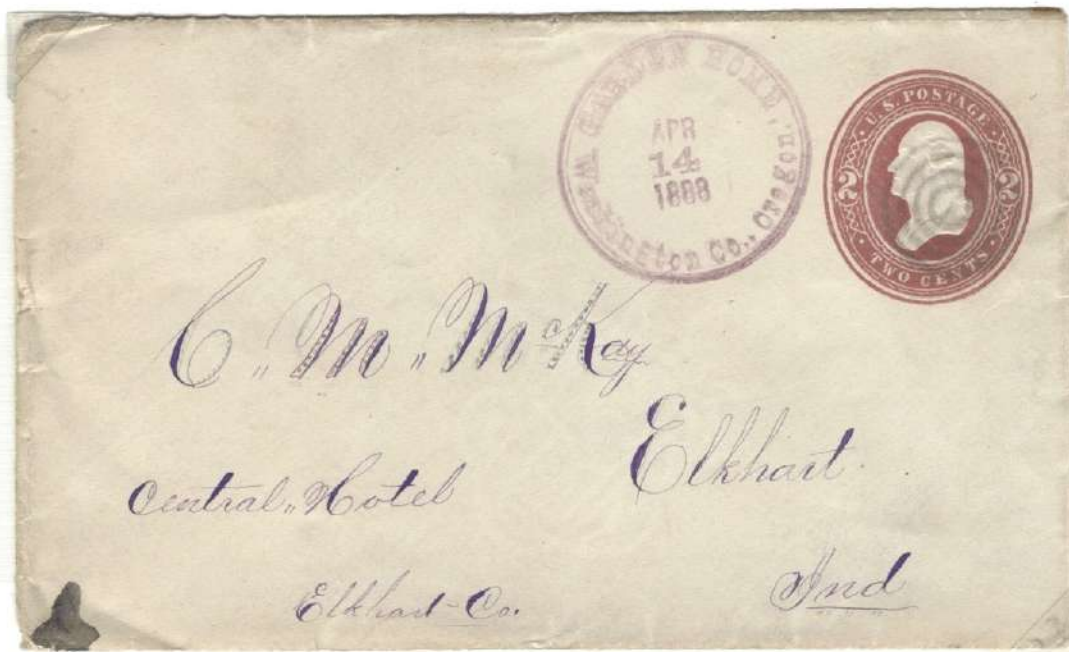 GARDEN HOME,
Washington Co., Oregon.
APR
14
1888
U.S. POSTAGE
2 2
TWO CENTS
C. M. McKay
Elkhart
Central Hotel
Elkhart Co.
Ind